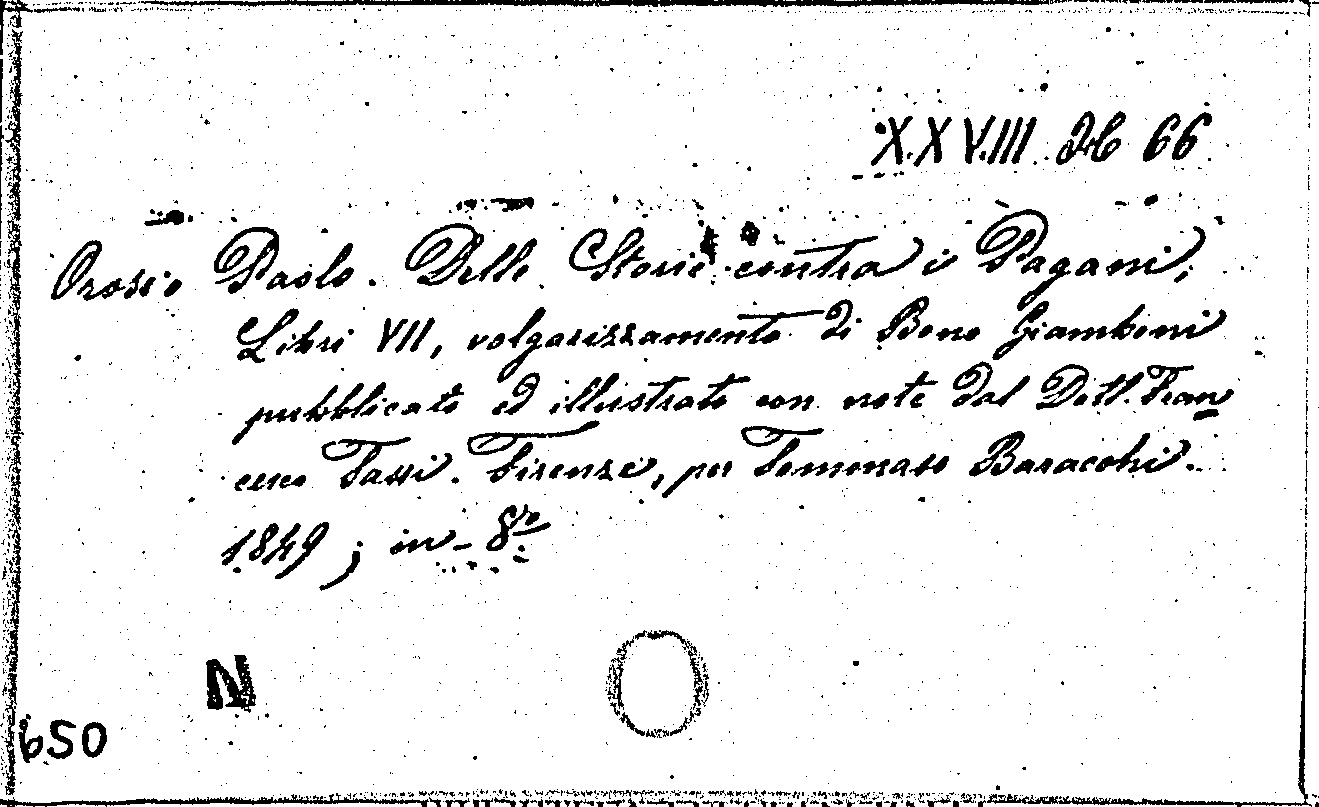 XXVIII 66
Orosio Paolo. Delle Storie contra i Pagani,
Libri VII, volgarizzamento di Bono Giamboni
pubblicato ed illustrato con note dal Dott. Fran
cesco Tassi. Firenze, per Tommaso Baracchi.
1849; in-8vo
N
650